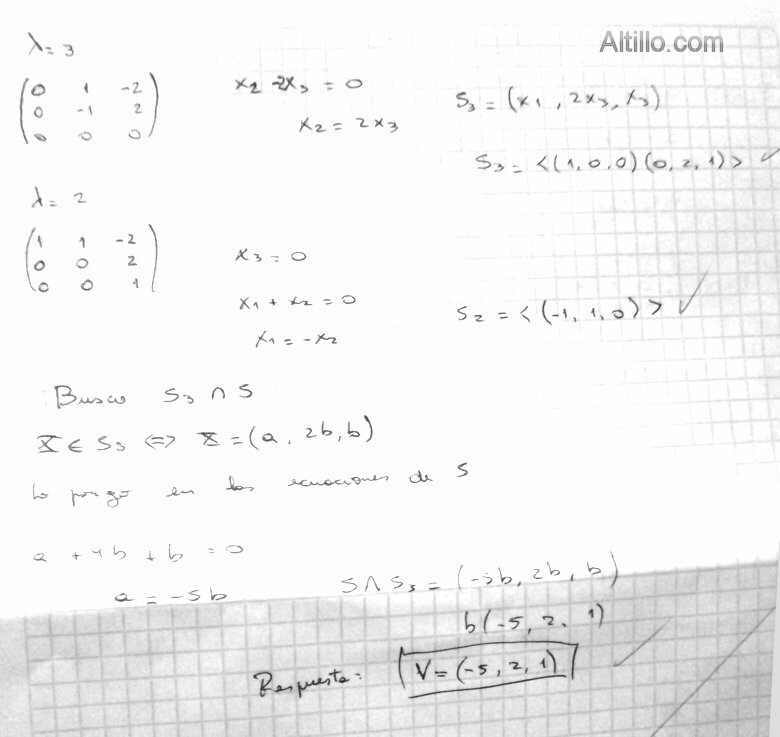 Altillo.com
λ = 3
0 1 -2
0 -1 2
0 0 0
x2 - 2x3 = 0
x2 = 2x3
S3 = (x1, 2x3, x3)
S3 = <(1,0,0)(0,2,1)> ✓
λ = 2
1 1 -2
0 0 2
0 0 1
x3 = 0
x1 + x2 = 0
x1 = -x2
S2 = <(-1,1,0)> ✓
Busco S3 ∩ S
X ∈ S3 ⇔ X = (a, 2b, b)
Lo pongo en las ecuaciones de S
a + 4b + b = 0
a = -5b
S ∩ S3 = (-5b, 2b, b)
b(-5, 2, 1)
Respuesta: V = (-5, 2, 1) ✓